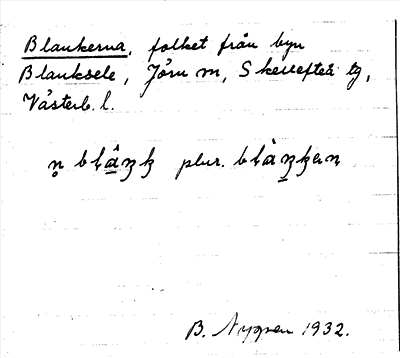 Blaukerna, folket från byn
Blauksele, Jörn m, Skellefteå tg,
Västerb. l.
plur.
B. Nygren 1932.